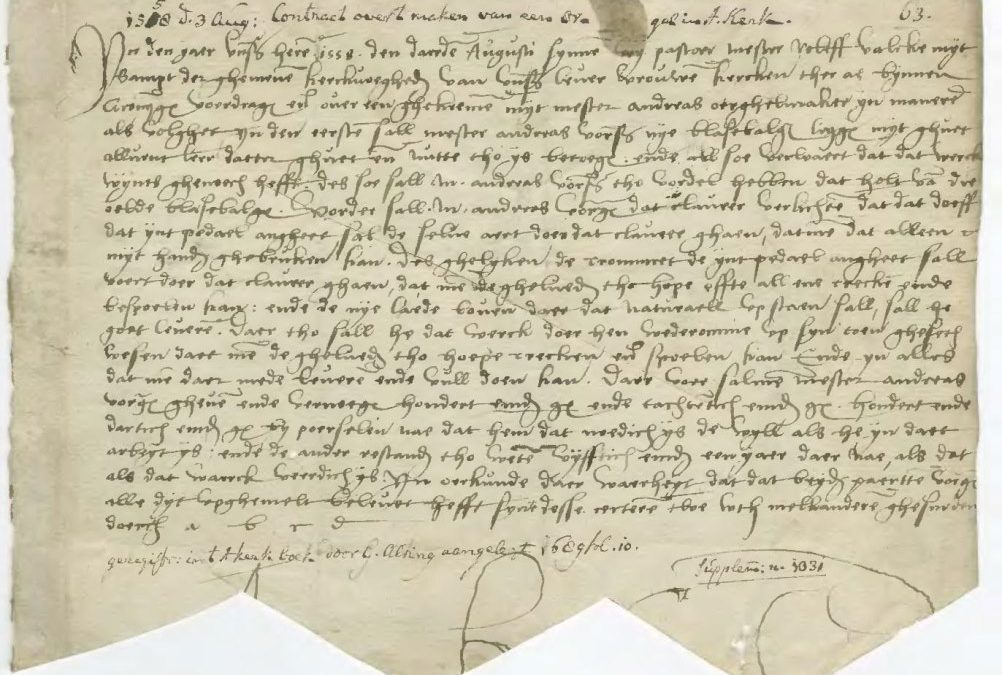 1558 d. 3 Aug: Contract over 't maken van een Or gel in A. Kerk. 63.
In den jaer unses heren 1558 den darden Augusti synne wy pastoer mester Rolleff valcke myt
sampt der ghemenen kerckvoegheden van unser lever vrouwen kercken ther ae bynnen
Groningen voerdragen end over een ghekoemen myt mester andreas oerghelmaker yn maneren
als volghet yn den eersten sall mester andreas vorscr nye blasebalgen leggen myt ghuet
alluent leer datter ghuet en nutte tho ys bewegen ende all soe verwaert dat dat werck
wynts ghenoech hefft des soe sall M. andreas vorscr tho vordel hebben dat holt van die
oelde blasebalgen. Vorder sall M. andreas vorgen dat claveer verlichten dat dat doeff
dat ynt pedael angheet sal de selve aert doer dat claveer ghaen, dat me dat alleen
myt handen ghebruken kan. Des ghelyken de trommet de ynt pedael angheet sall
voert doer dat claveer ghaen, dat men de gheluden tho hope offte all ene trecken ende
bespoelen kan: ende de nye laede boven daer dat naturaell up staen sall, sall he
goet levere. Daer tho sall he dat werck doer hen wederomme up syn toen ghesett
wesen daer men de gheluden tho hoepe trecken end spoelen kan Ende yn alles
dat me daer mede leveren ende vull doen kan. Daer voer salmen mester andreas
vorgen gheven ende vernoegen hondert emden gl ende tachtentich emden gl hondert ende
dartich emden gl by poerselen nae dat hem dat noedich ys de wyll als he yn daer
arbeyt ys: ende de ander restanden tho weten vyfftich emden een yaer daer nae, als dat
als dat warck veerdich ys. Yn oerkunde daer waerheyt dat dat beyden paertte vorgen
alle dyt upghemelt belevet hefft synt desse certeren twe uth melkanderen ghesneden
doerch a b c d
geregistr: in 't Akerk boek door G. Alting aengelegt 1689 fol. 10.
Supplem: n. 1031